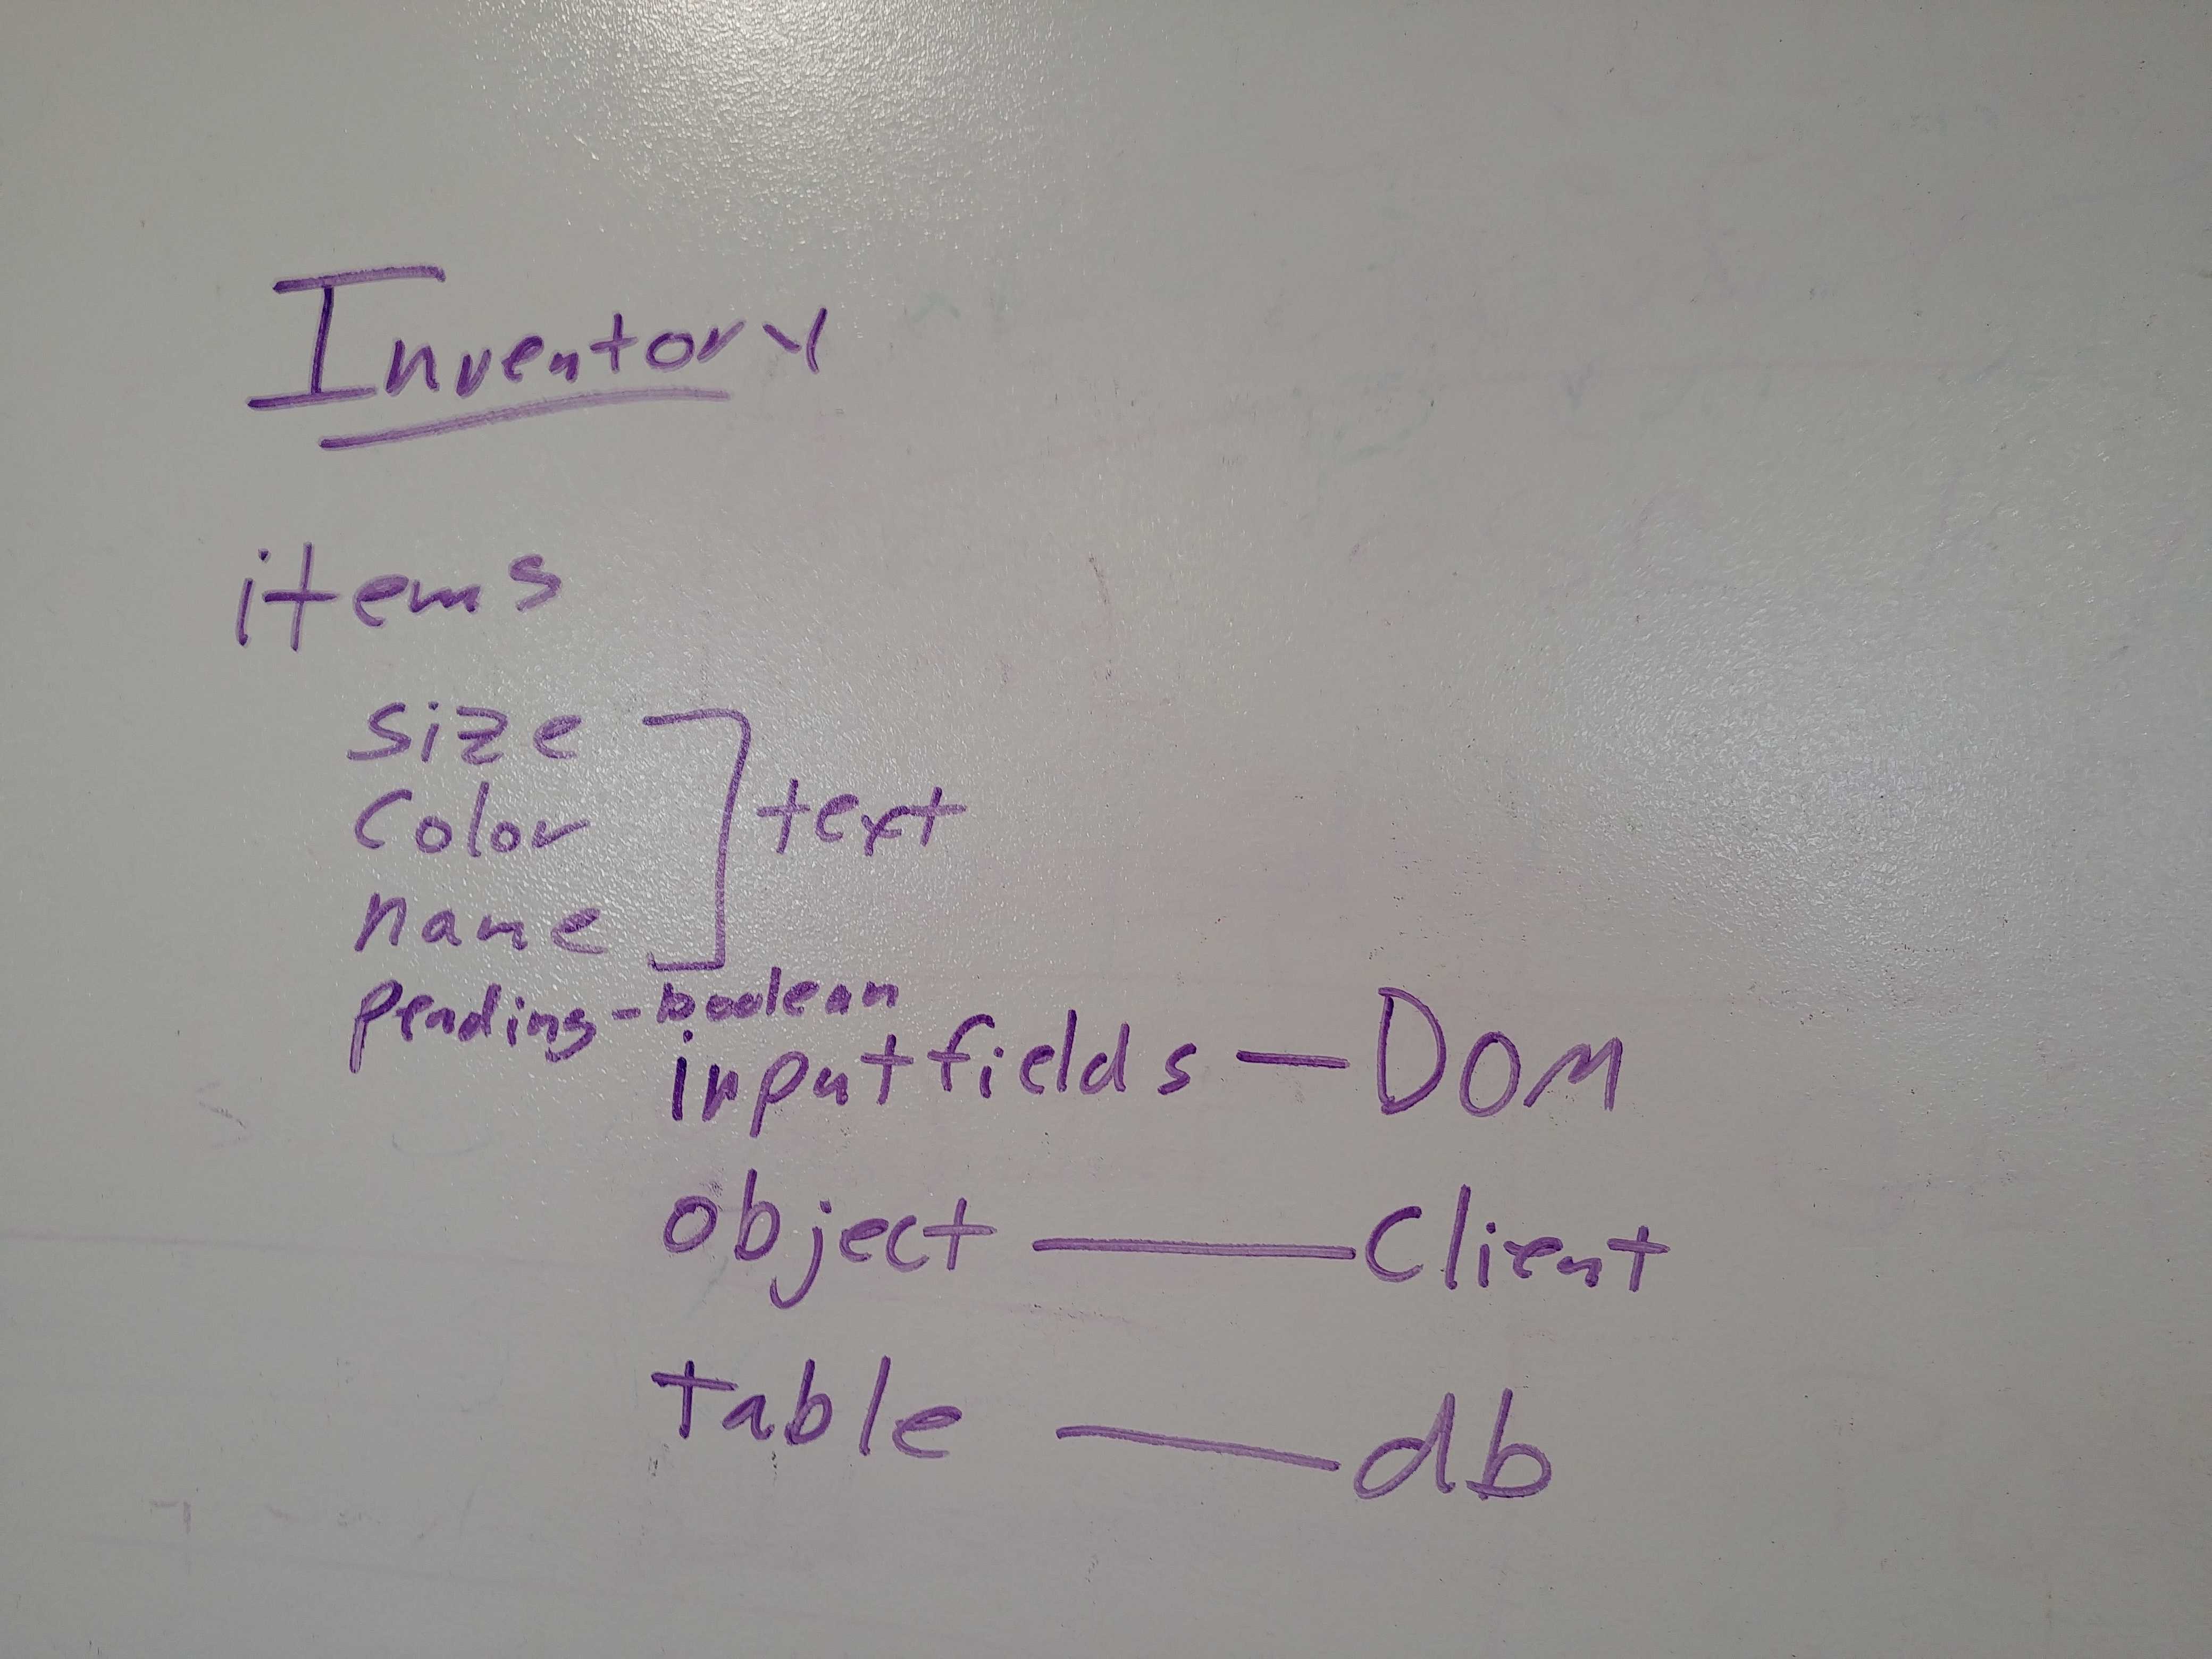 Inventory
items
size
color
name
text
pending - boolean
input fields — DOM
object — Client
table — db